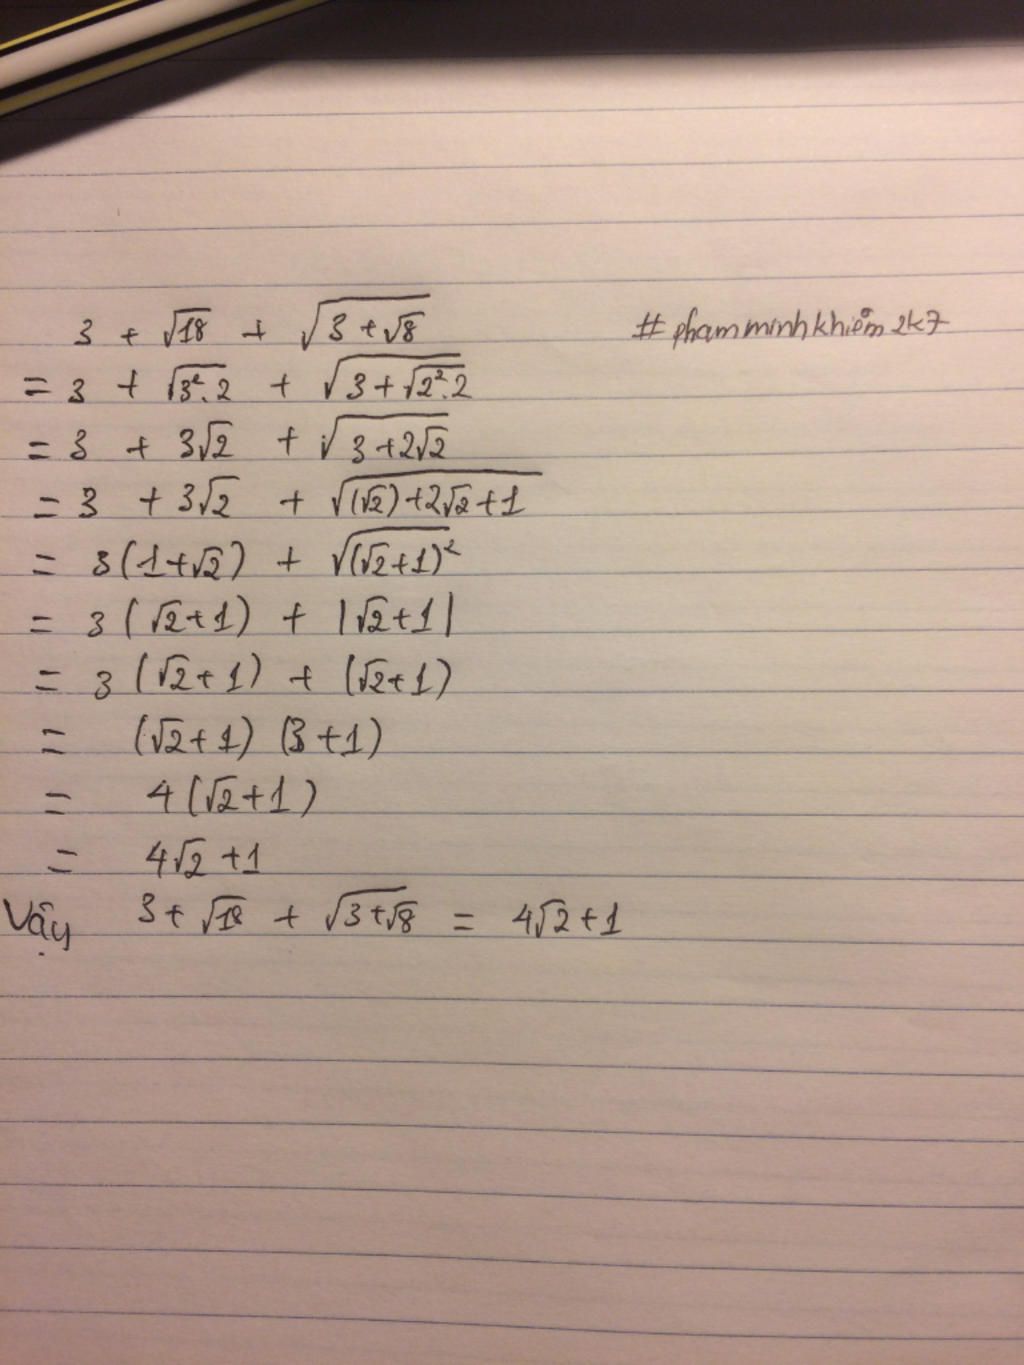 3 + √18 + √(3 + √8) #phamminhkhiêm2k7
= 3 + √(3².2) + √(3 + √(2².2))
= 3 + 3√2 + √(3 + 2√2)
= 3 + 3√2 + √((√2) + 2√2 + 1)
= 3(1 + √2) + √((√2 + 1)²)
= 3(√2 + 1) + |√2 + 1|
= 3(√2 + 1) + (√2 + 1)
= (√2 + 1) (3 + 1)
= 4(√2 + 1)
= 4√2 + 1
Vậy 3 + √18 + √(3 + √8) = 4√2 + 1